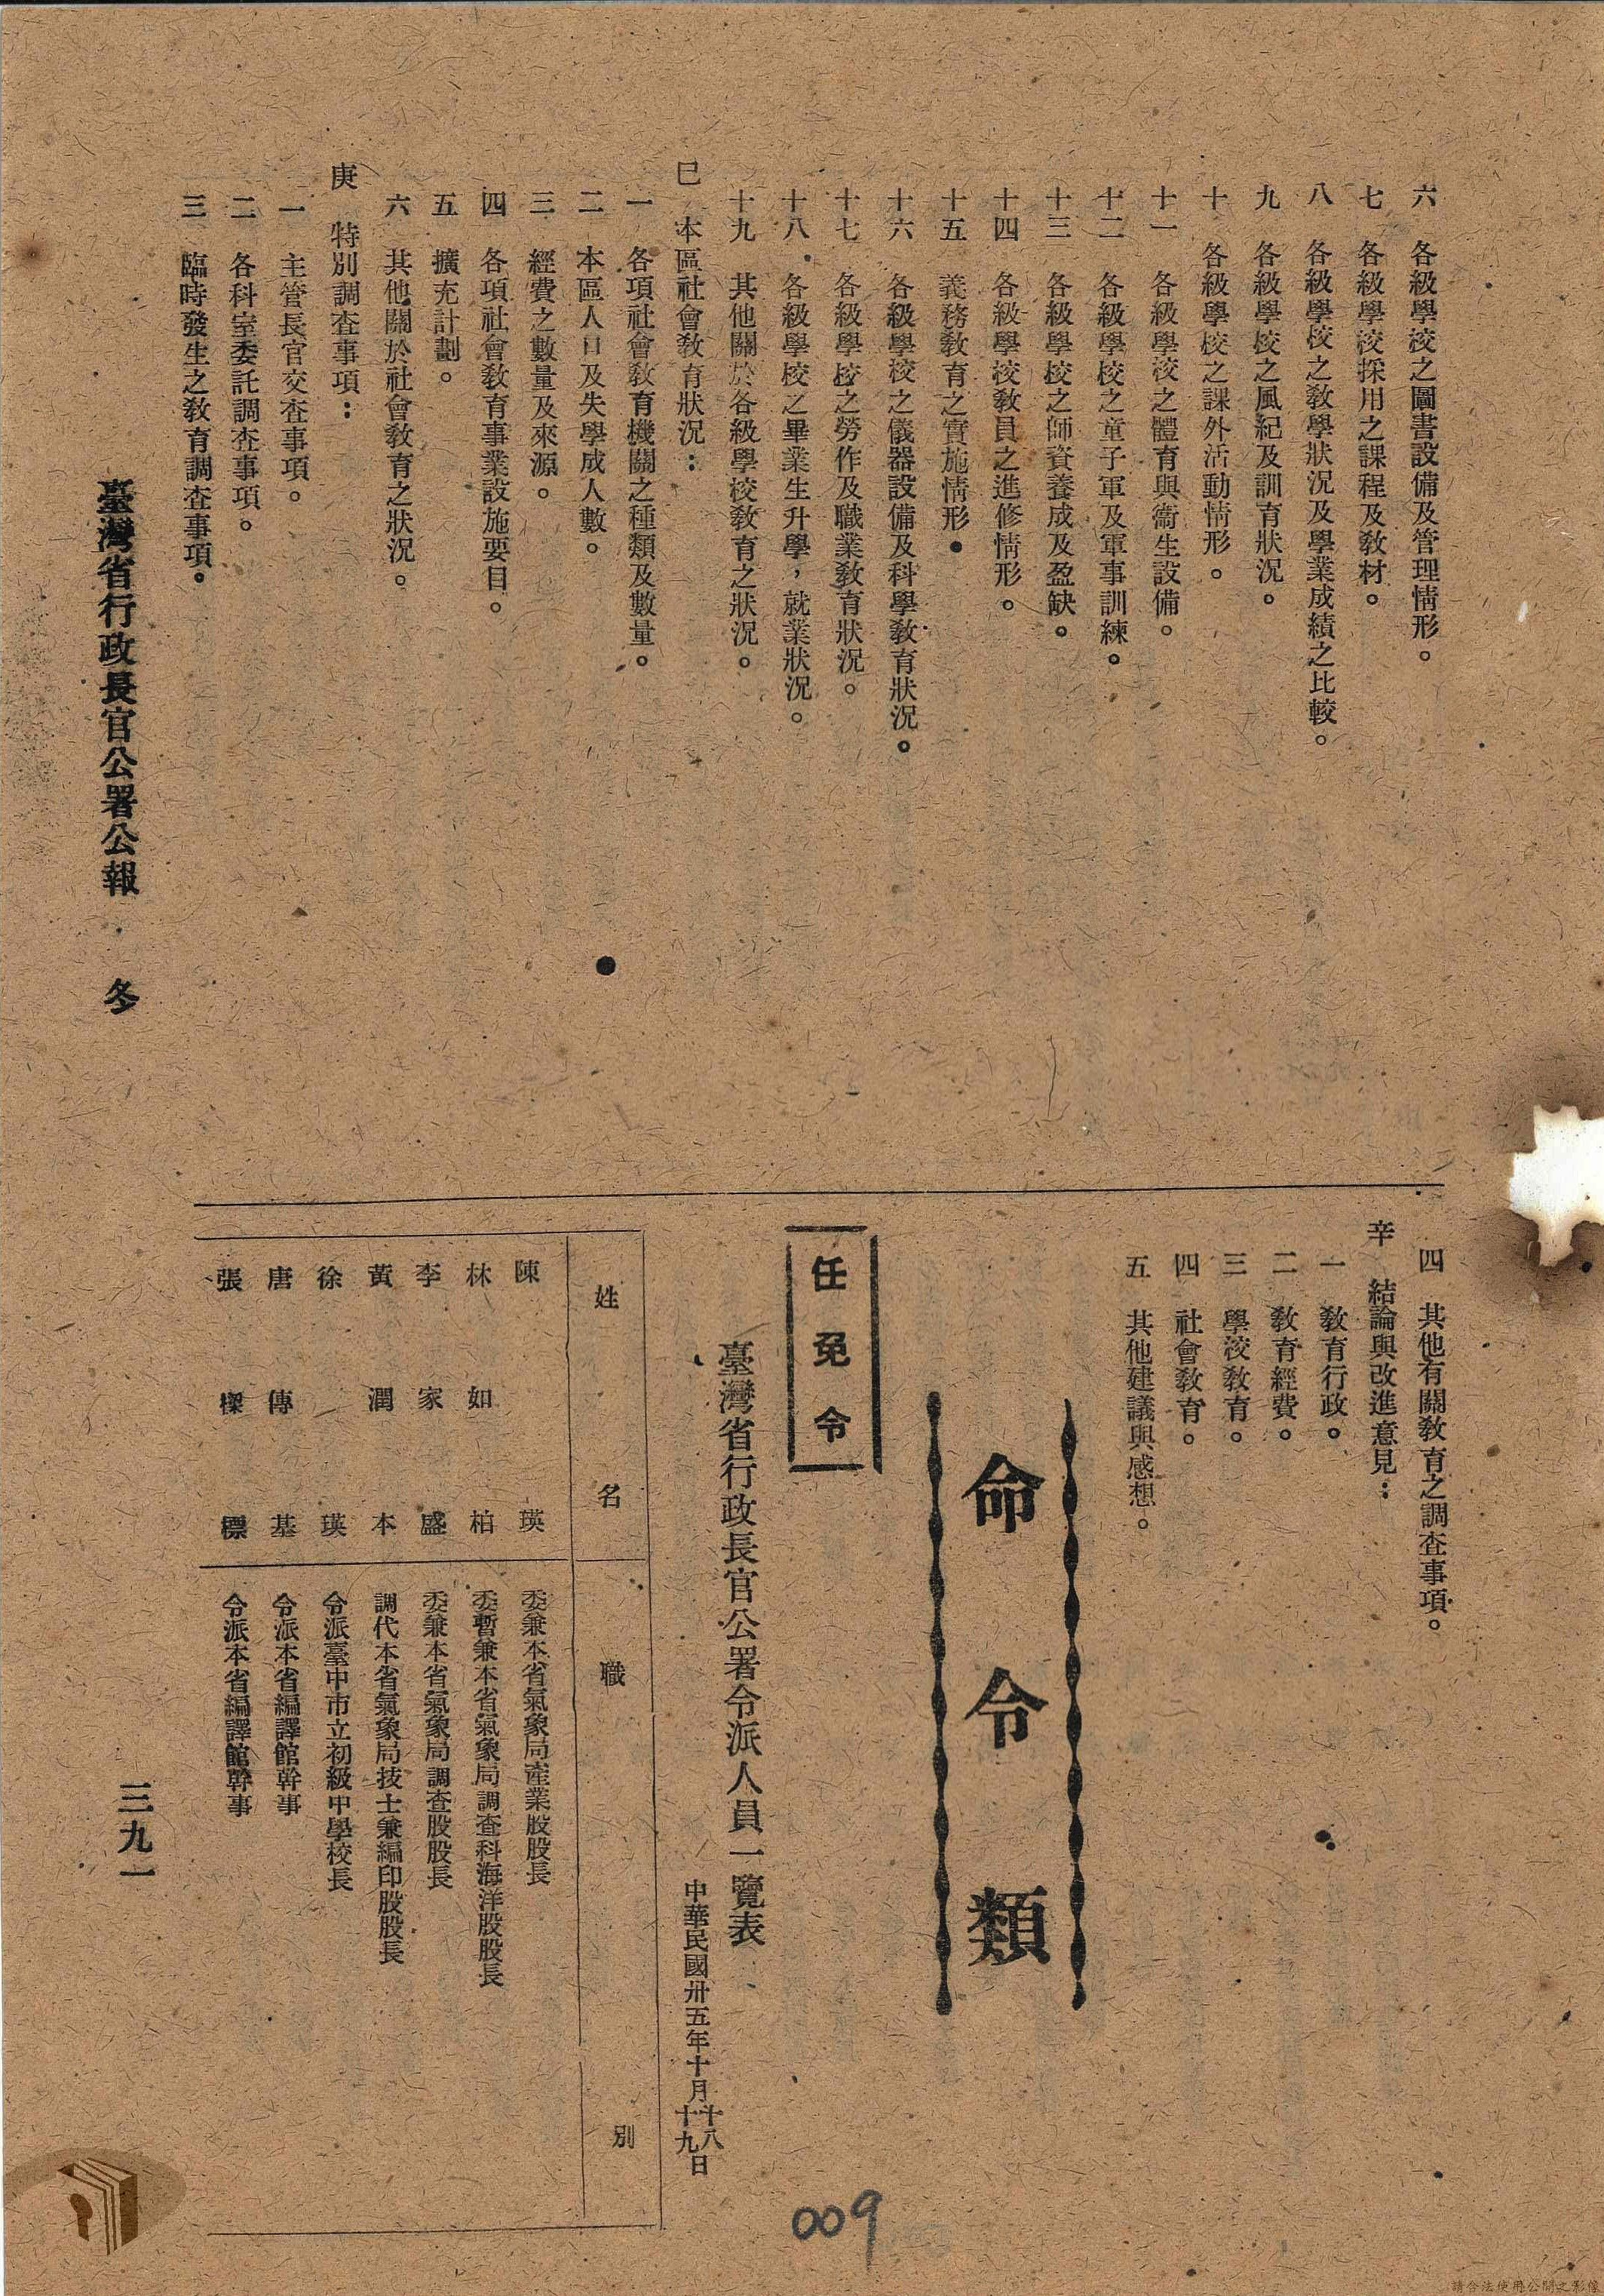 六　各級學校之圖書設備及管理情形。
七　各級學校採用之課程及教材。
八　各級學校之教學狀況及學業成績之比較。
九　各級學校之風紀及訓育狀況。
十　各級學校之課外活動情形。
十一　各級學校之體育與衞生設備。
十二　各級學校之童子軍及軍事訓練。
十三　各級學校之師資養成及盈缺。
十四　各級學校教員之進修情形。
十五　義務教育之實施情形。
十六　各級學校之儀器設備及科學教育狀況。
十七　各級學校之勞作及職業教育狀況。
十八　各級學校之畢業生升學，就業狀況。
十九　其他關於各級學校教育之狀況。
巳　本區社會教育狀況：
一　各項社會教育機關之種類及數量。
二　本區人口及失學成人數。
三　經費之數量及來源。
四　各項社會教育事業設施要目。
五　擴充計劃。
六　其他關於社會教育之狀況。
庚　特別調查事項：
一　主管長官交查事項。
二　各科室委託調查事項。
三　臨時發生之教育調查事項。
四　其他有關教育之調查事項。
辛　結論與改進意見：
一　教育行政。
二　教育經費。
三　學校教育。
四　社會教育。
五　其他建議與感想。
命令類
任免令
臺灣省行政長官公署令派人員一覽表
中華民國卅五年十月十八十九日
姓名　職別
陳瑛　委兼本省氣象局產業股股長
林如柏　委暫兼本省氣象局調查科海洋股股長
李家盛　委兼本省氣象局調查股股長
黃潤本　調代本省氣象局技士兼編印股股長
徐瑛　令派臺中市立初級中學校長
唐傳基　令派本省編譯館幹事
張樑標　令派本省編譯館幹事
臺灣省行政長官公署公報　冬
三九一
009
請合法使用公開之影像